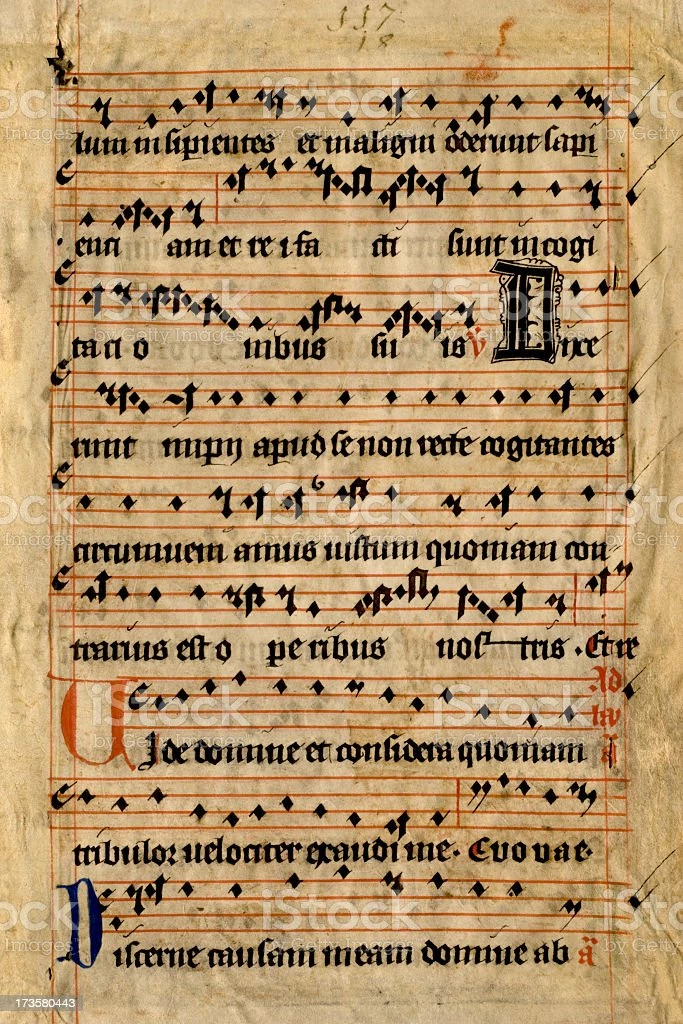 117
18
lum insipientes et maligni oderunt sapi
enci am et re i fa cti sunt in cogi
taci o nibus su is V Dixe
runt impij apud se non recte cogitantes
circumueni amus iustum quoniam con
trarius est o pe ribus nos tris . Et re
Ad
lau
Uide domine et considera quoniam a
tribulor uelociter exaudi me . Euouae .
Discerne causam meam domine ab a
iStock
by Getty Images
173580443